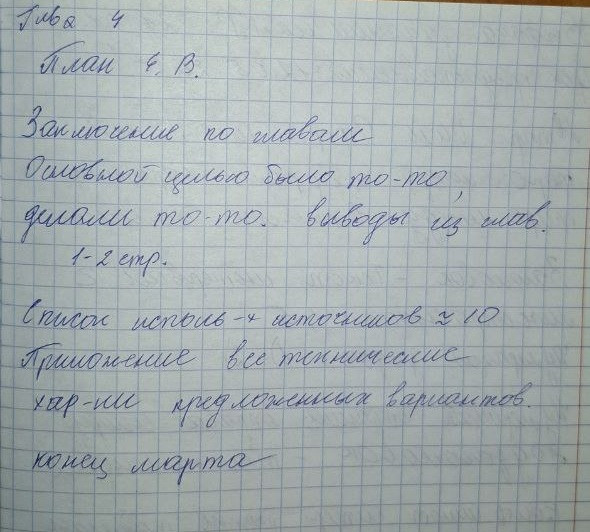 Глва 4
План Е. В.
Заключение по главам
Основной целью было то-то,
делали то-то. выводы из глав.
1-2 стр.
Список исполь-х источников ≈ 10
Приложение все технические
хар-ки предложенных вариантов.
конец марта